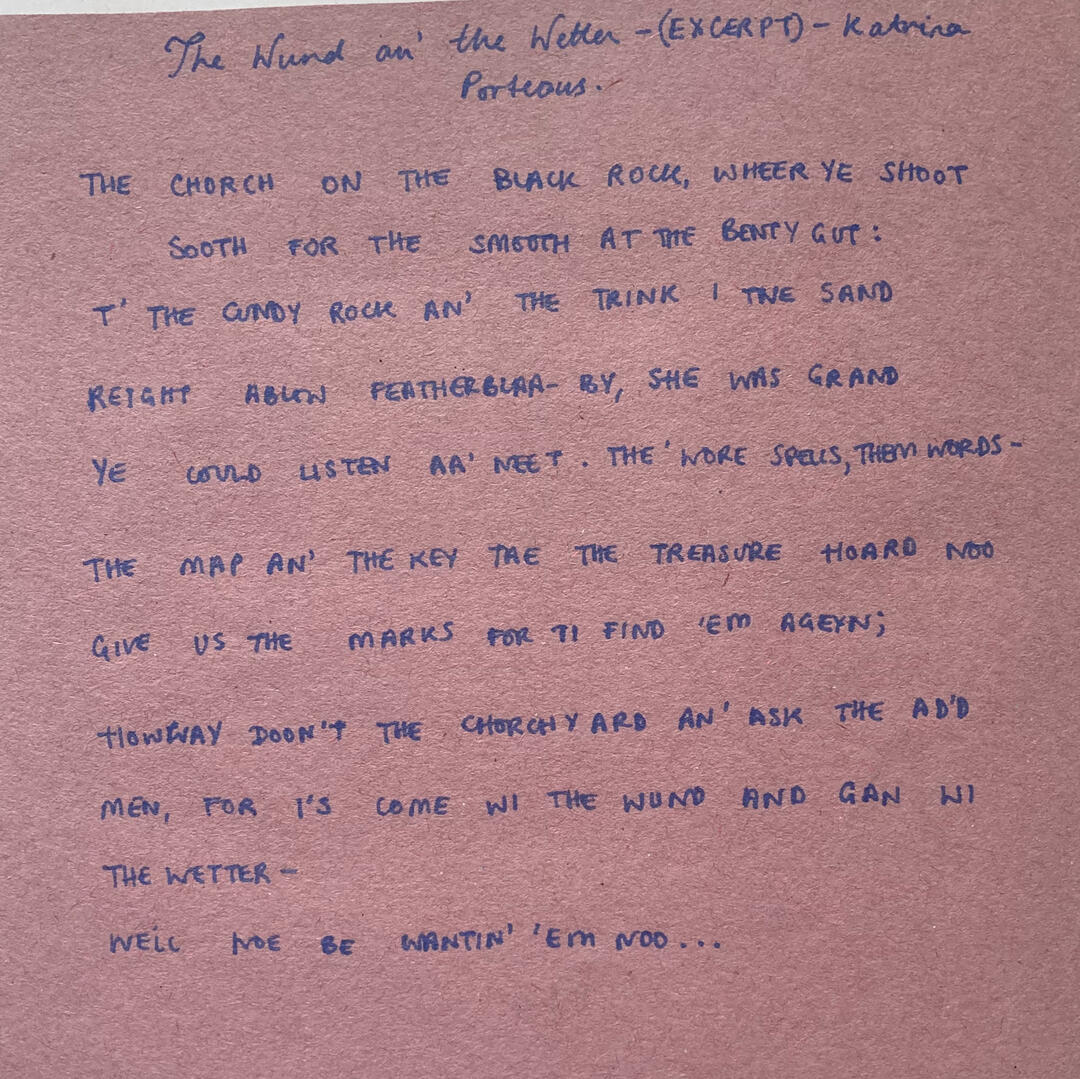 The Wund an' the Wetter - (EXCERPT) - Katrina
Porteous.
THE CHORCH ON THE BLACK ROCK, WHEER YE SHOOT
SOOTH FOR THE SMOOTH AT THE BENTY GUT:
T' THE CUNDY ROCK AN' THE TRINK I THE SAND
REIGHT ABLOW FEATHERBLAA- BY, SHE WAS GRAND
YE COULD LISTEN AA' NEET. THE' WORE SPELLS, THEM WORDS -
THE MAP AN' THE KEY TAE THE TREASURE HOARD NOO
GIVE US THE MARKS FOR TI FIND 'EM AGEYN;
HOWWAY DOON'T THE CHORCHYARD AN' ASK THE AD'D
MEN, FOR I'S COME WI THE WUND AND GAN WI
THE WETTER -
WE'LL NOE BE WANTIN' 'EM NOO...